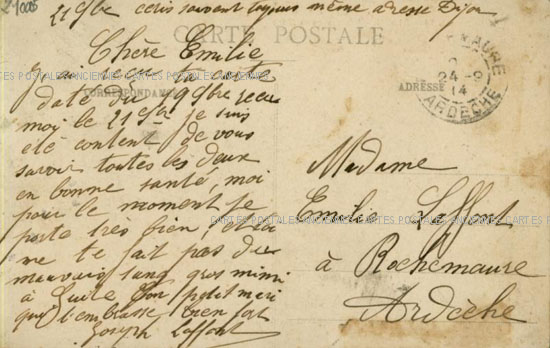 21000
21 9bre ecris souvent toujours même adresse Dijon
CARTE POSTALE
Chère Emilie
j'ai reçu ta carte
CARTES POSTALES ANCIENNES
daté du 19 9bre reçu
CORRESPONDANCE
moi le 21 9bre je suis
été content de vous
savoir toutes les deux
en bonne santé, moi
pour le moment je
porte très bien et
ne te fait pas du
mauvais sang gros mimi
à Ton petit mari
qui t'embrasse bien fort
Joseph Laffont
ADRESSE
MAURE
24 -9
14
ARDECHE
Madame
Emilie Laffont
à Rochemaure
Ardèche